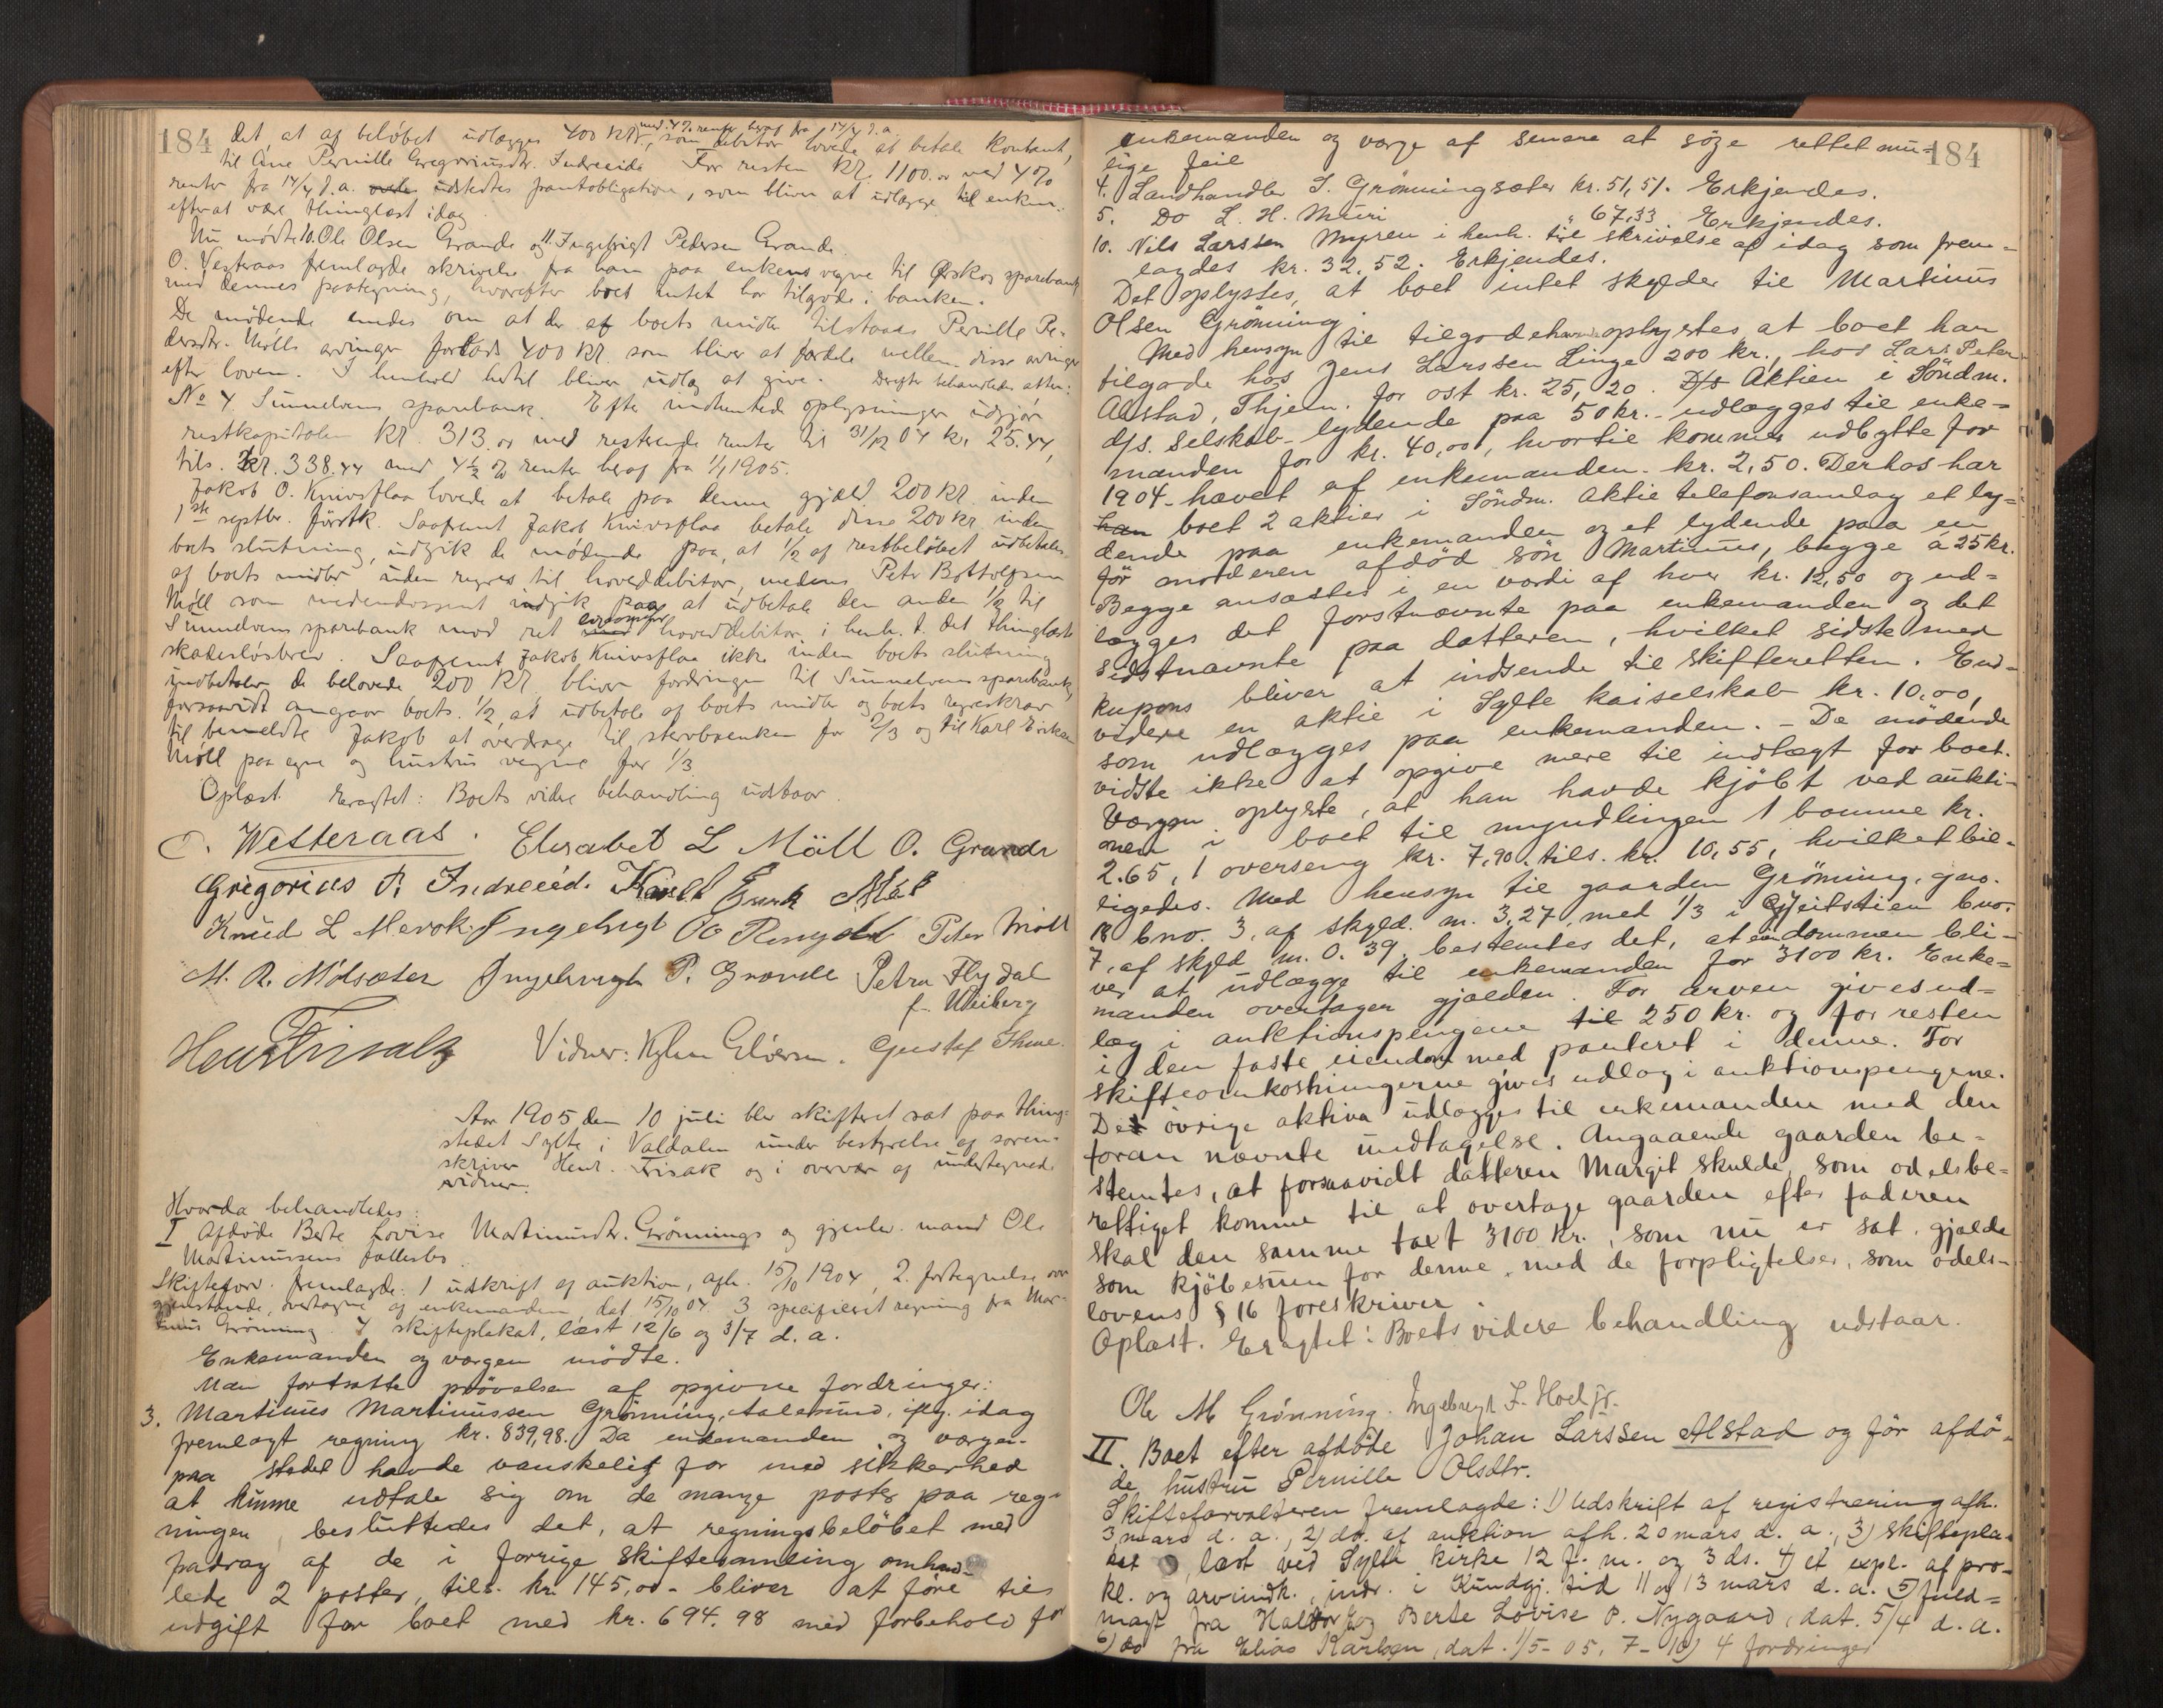 184
det, at af beløbet udlægges 400 kr., med 4% renter beraf fra 14/4 d.a. som debitor lovede at betale kontant,
til Ane Pernille Gregoriusdr. Indreeide. For resten kr. 1100.00 med 4%
renter fra 14/4 d.a. udstedtes pantobligation, som bliver at udlægge til enken
efterat være thinglæst idag.
Nu mødte 10. Ole Olsen Grande og 11. Ingebrigt Pedersen Grande.
O. Vestraas fremlagde skrivelse fra ham paa enkens vegne til Ørskog sparebank
med dennes paategning, hvorefter boet intet har tilgode i banken.
De mødende enedes om at der af boets midler tilstaaes Pernille Pe-
dersdr. Mölls arvinger forlods 400 kr. som bliver at fordele mellem disse arvinger
efter loven. I henhold hertil bliver udlæg at give. Derefter behandledes atter:
No 4 Sunnelvens sparebank. Efter indhentede oplysninger udgjør
restkapitalen kr. 313.00 med resterende renter til 31/12 04 kr. 25.44,
tils. kr. 338.44 med 4 1/2 % renter beraf fra 1/1 1905.
Jakob O. Knivsflaa lovede at betale paa denne gjæld 200 kr. inden
1ste septbr. førstk. Saafremt Jakob Knivsflaa betale disse 200 kr. inden
boets slutning, udgik de mødende paa, at 1/2 af restbeløbet udbetales
af boets midler uden regres til hoveddebitor, medens Peter Bottolfsen
Möll som medendossent indgik paa at udbetale den anden 1/2 til
Sunnelvens sparebank mod ret ligeoverfor hoveddebitor i henh. t. det thinglæste
skadesløsbrev. Saafremt Jakob Knivsflaa ikke inden boets slutning
indbetaler de belovede 200 kr. bliver fordringen til Sunnelvens sparebank,
forsaavidt angaar boets 1/2, at udbetale af boets midler og boets regreskrav
til bemeldte Jakob at overdrage til stervboenken for 2/3 og til Karl Eriksen
Möll paa egne og hustrus vegne for 1/3.
Oplæst. Eragtet: Boets videre behandling udstaar.
O. Westeraas. Elisabet L Möll O. Grande
Gregorius P. Indreeid. Karl Erik Möll
Knud L Merok. Ingebrigt Peter Möll
M. R. Mölsæter Ingebrigt P. Grande Petra Flydal
f. Wiiberg
Henr Frisak Vidner: Elversen. Gustaf Thue.
Aar 1905 den 10 juli blev skifteret sat paa thing-
stedet Sylte i Valdalen under bestyrelse af soren-
skriver Henr. Frisak og i overvær af undertegnede
vidner.
Hvorda behandledes:
I Afdøde Berte Lovise Martinusdr. Grønnings og gjenlev. mand Ole
Martinussens fællesbo.
Skifteforv. fremlagde: 1 udskrift af auktion, afh. 15/10 1904, 2. fortegnelse over
gjenstande, overtagne af enkemanden, dat. 15/10 04. 3 specificeret regning fra Mar-
tinus Grønning. 4 skifteplakat, læst 12/6 og 3/7 d.a.
Enkemanden og vergen mødte.
Man fortsatte prøvelsen af opgivne fordringer:
3. Martinus Martinussen Grønning, Aalesund, iflg. idag
fremlagt regning kr. 839,98. Da enkemanden og vergen
paa stedet havde vanskelig for med sikkerhed
at kunne udtale sig om de mange poster paa reg-
ningen, besluttedes det, at regningsbeløbet med
fradrag af de i forrige skiftesamling omhand-
lede 2 poster, tils. kr. 145,00 - bliver at føre til
udgift for boet med kr. 694.98 med forbehold for
184
enkemanden og verge af senere at søge rettet mu-
lige feil
4. Landhandler S. Grønningsæter kr. 51,51. Erkjendes.
5. Do L. H. Muri " 67,33 Erkjendes.
10. Nils Larssen Myren i henh. til skrivelse af idag som frem-
lagdes kr. 32.52. Erkjendes.
Det oplystes, at boet intet skylder til Martinus
Olsen Grønning.
Med hensyn til tilgodehavende oplystes, at boet har
tilgode hos Jens Larssen Linge 200 kr., hos Lars Peter
Alstad, Thjem. for ost kr. 25,20. D/s Aktien i Söndm.
d/s. selskab - lydende paa 50 kr. - udlægges til enke-
manden for kr. 40,00, hvortil kommer udbytte for
1904 - hævet af enkemanden - kr. 2,50. Derhos har
boet 2 aktier i Söndm. aktie telefonsamlag et ly-
dende paa enkemanden og et lydende paa en
før moderen afdød søn Martinus, begge á 25 kr.
Begge ansættes i en værdi af hver kr. 12,50 og ud-
lægges det førstnævnte paa enkemanden og det
sidstnævnte paa datteren, hvilket sidste med
kupons bliver at indsende til skifteretten. End-
videre en aktie i Sylte kaiselskab kr. 10,00,
som udlægges paa enkemanden. - De mødende
vidste ikke at opgive mere til indtægt for boet.
Vergen oplyste, at han havde kjøbt ved aukti-
onen i boet til myndlingen 1 bomme kr.
2.65, 1 overseng kr. 7,90. tils. kr. 10,55, hvilket bil-
ligedes. Med hensyn til gaarden Grønning, gno.
18 bno. 3, af skyld. m. 3,27, med 1/3 i Gjeitstien bno.
7, af skyld m. 0.39, bestemtes det, at eiendommen bli-
ver at udlægge til enkemanden for 3100 kr. Enke-
manden overtager gjælden. For arven gives ud-
læg i auktionspengene til 250 kr. og for resten
i den faste eiendom med panteret i denne. For
skifteomkostningerne gives udlæg i auktionspengene.
De øvrige aktiva udlægges til enkemanden med den
foran nævnte undtagelse. Angaaende gaarden be-
stemtes, at forsaavidt datteren Margit skulde, som odelsbe-
rettiget komme til at overtage gaarden efter faderen
skal den samme taxt 3100 kr., som nu er sat, gjælde
som kjøbesum for denne, med de forpligtelser, som odels-
lovens § 16 foreskriver.
Oplæst. Eragtet: Boets videre behandling udstaar.
Ole M Grønning. Ingebregt L. Hoel jr.
II. Boet efter afdøde Johan Larssen Alstad og før afdø-
de hustru Pernille Olsdtr.
Skifteforvalteren fremlagde: 1) Udskrift af registrering afh.
3 mars d. a., 2) do. af auktion afh. 20 mars d. a., 3) skiftepla-
kat, læst ved Sylte kirke 12 f. m. og 3 ds. 4) et expl. af pro-
kl. og arvindk., indr. i Kundgj. tid 11 og 13 mars d. a. 5) fuld-
magt fra Haldor og Berte Lovise P. Nygaard, dat. 5/4 d. a.
6) do fra Elias Karlsen, dat. 1/5 - 05, 7 - 10) 4 fordringer